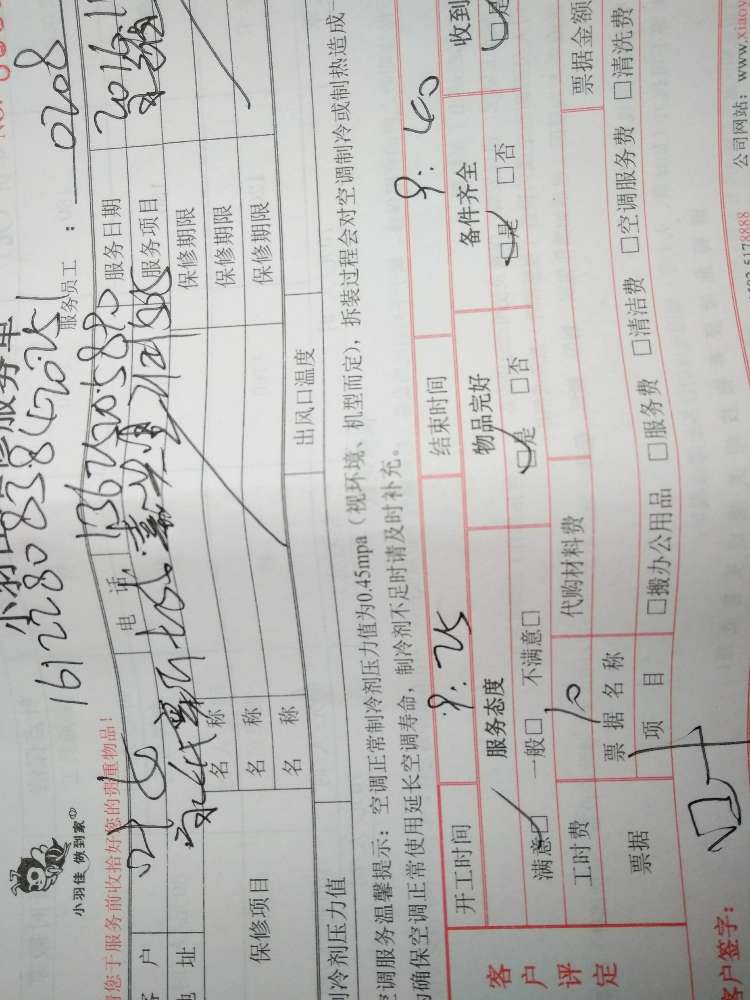 小羽佳 做到家
161228083842025
服务员工：0208
您于服务前收拾好您的贵重物品！
客户 叶 电话
服务日期 2016.1
地址
服务项目
保修项目 名称 保修期限
名称 保修期限
名称 保修期限
制冷剂压力值 出风口温度
空调服务温馨提示：空调正常制冷剂压力值为0.45mpa（视环境、机型而定），拆装过程会对空调制冷或制热造成一
为确保空调正常使用延长空调寿命，制冷剂不足时请及时补充。
开工时间 9:25 结束时间 9:40
客户评定
服务态度 物品完好 备件齐全 收到
满意□ 一般□ 不满意□ □是 □否 □是 □否 □是
工时费 10 代购材料费
票据 票据名称 票据金额
项目 □搬办公用品 □服务费 □清洁费 □空调服务费 □清洗费
客户签字：
公司网站：www.xiaoy
5178888